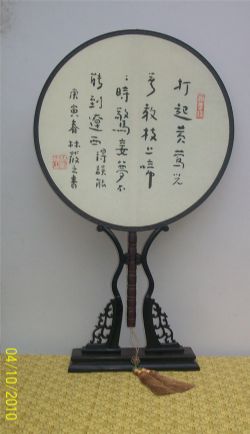 打起黄鶯兒
莫教枝上啼
時驚妾夢不
到遼西
庚寅春林薇之書
04/10/2010